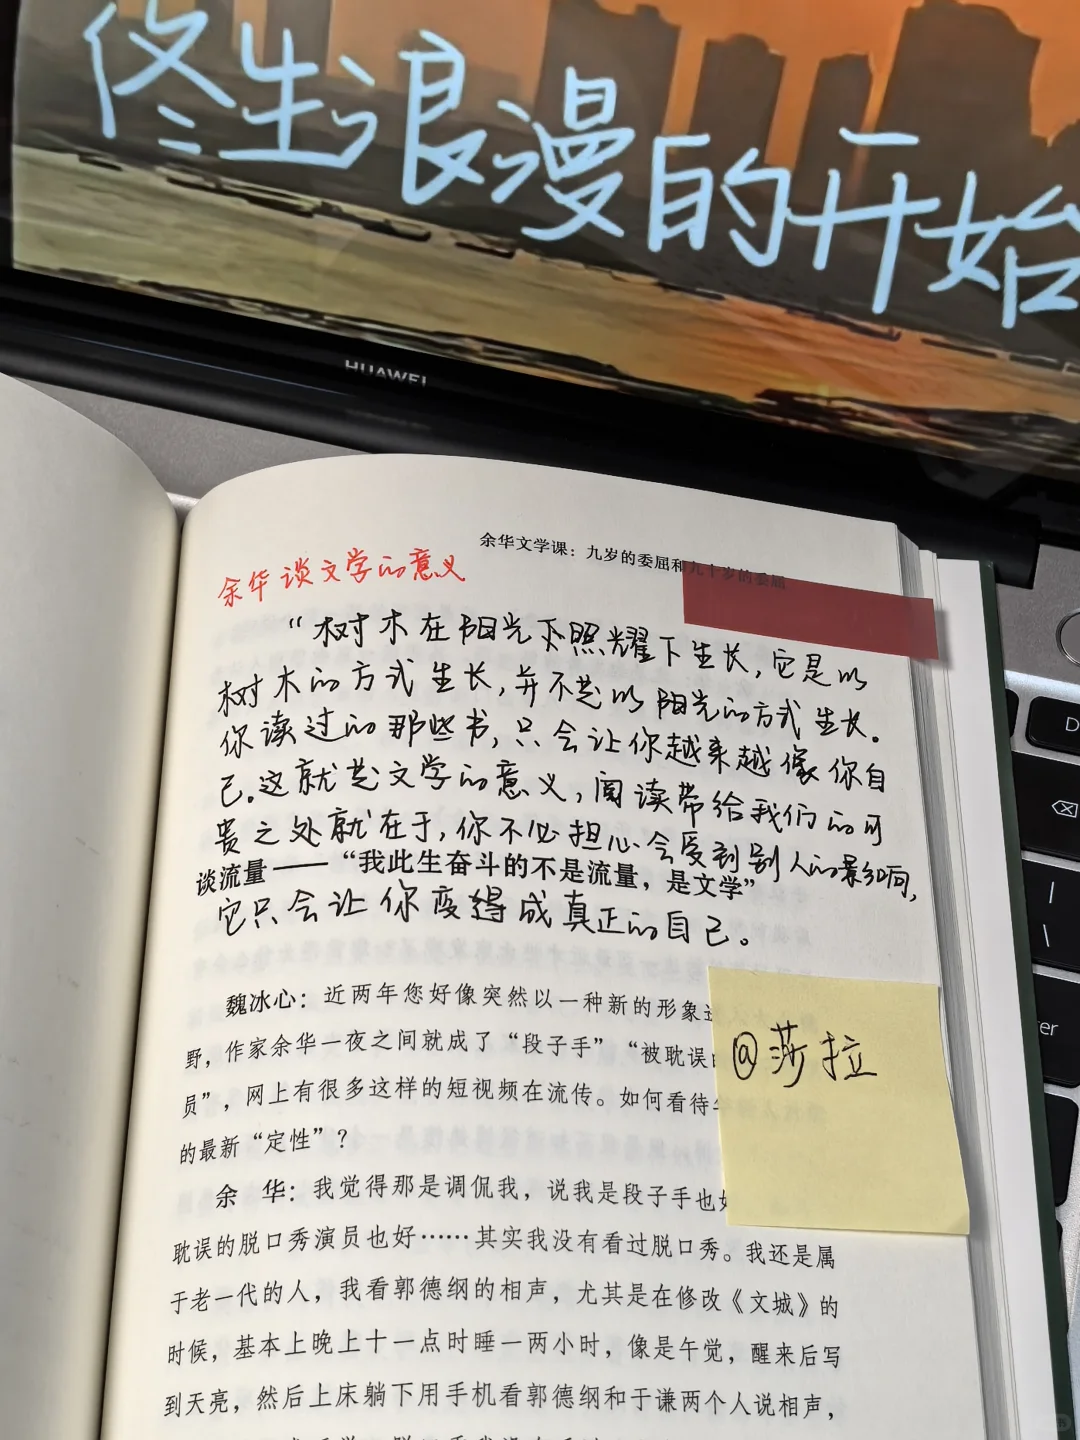 终生浪漫的开始
HUAWEI
余华文学课：九岁的委屈和九十岁的委屈
余华谈文学的意义
“树木在阳光下照耀下生长，它是以
树木的方式生长，并不是以阳光的方式生长。
你读过的那些书，只会让你越来越像你自
己。这就是文学的意义，阅读带给我们的可
贵之处就在于，你不必担心会受到别人的影响，
谈流量——“我此生奋斗的不是流量，是文学”
它只会让你变得成真正的自己。
魏冰心：近两年您好像突然以一种新的形象
野，作家余华一夜之间就成了“段子手”“被耽误
员”，网上有很多这样的短视频在流传。如何看待
的最新“定性”？
@莎拉
余　华：我觉得那是调侃我，说我是段子手也
耽误的脱口秀演员也好……其实我没有看过脱口秀。我还是属
于老一代的人，我看郭德纲的相声，尤其是在修改《文城》的
时候，基本上晚上十一点时睡一两小时，像是午觉，醒来后写
到天亮，然后上床躺下用手机看郭德纲和于谦两个人说相声，